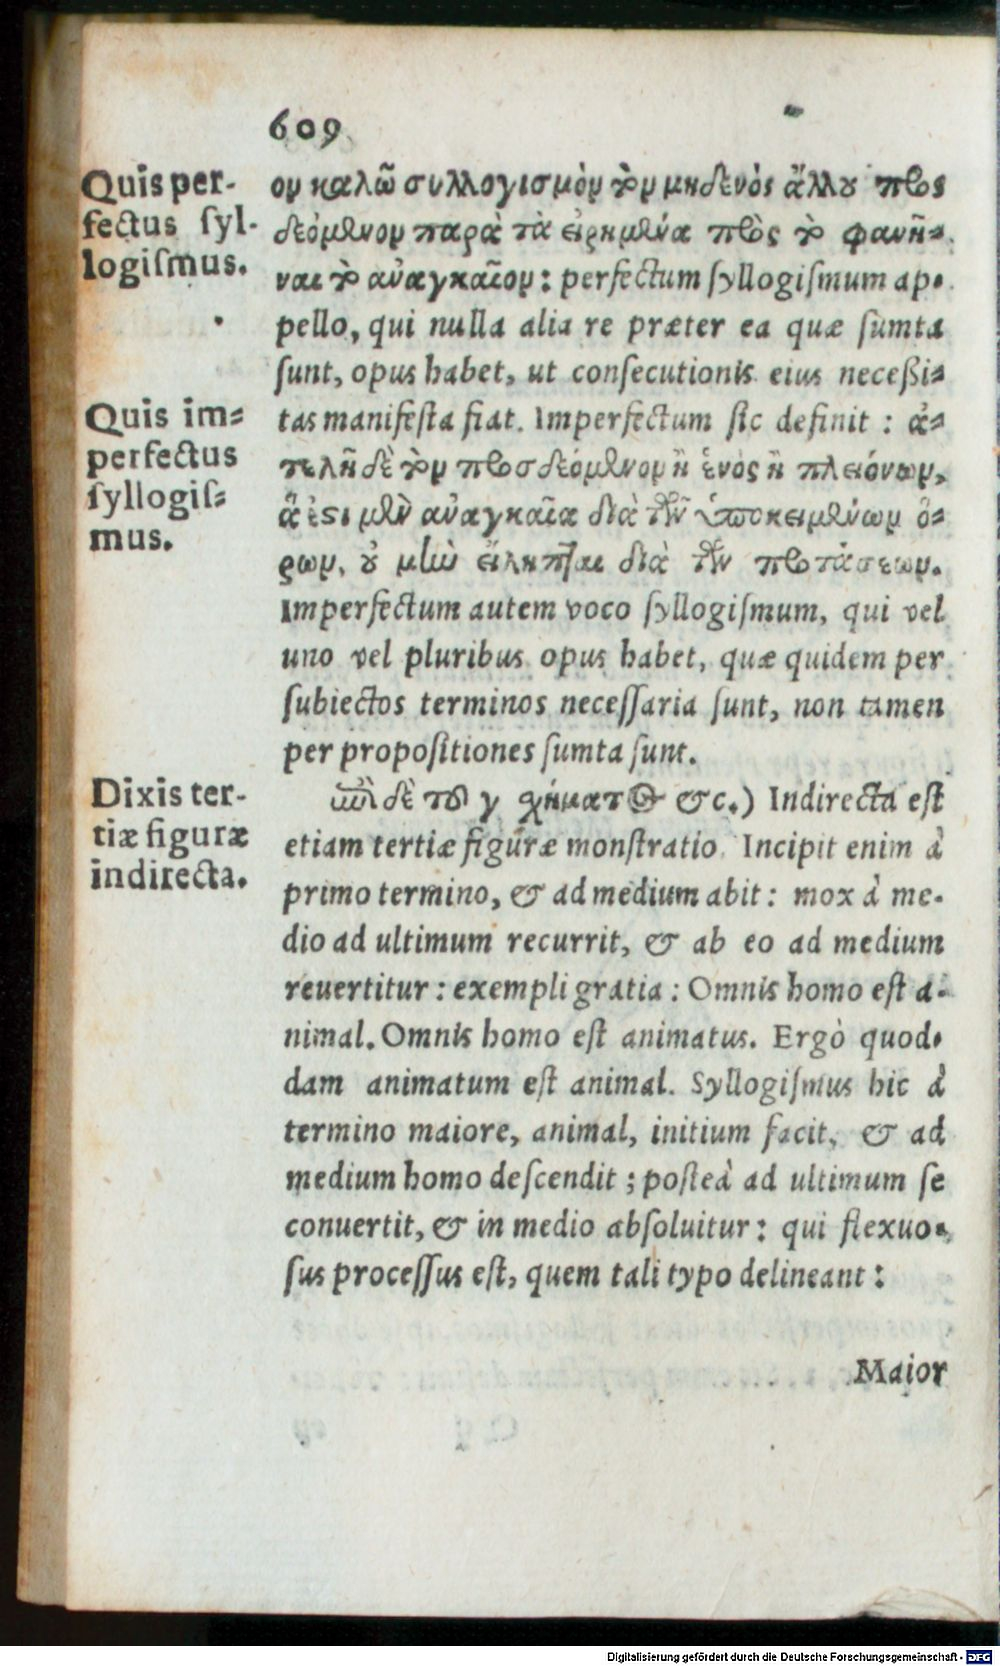 609
Quis per-
fectus syl-
logismus.
ον καλῶ συλλογισμὸν τὸν μηδενὸς ἄλλου πρὸς
δεόμενον παρὰ τὰ εἰρημένα πρὸς τὸ φανῆ-
ναι τὸ ἀναγκαῖον: perfectum syllogismum ap-
pello, qui nulla alia re præter ea quæ sumta
sunt, opus habet, ut consecutionis eius necessi-
tas manifesta fiat. Imperfectum sic definit: ἀ-
Quis im-
perfectus
syllogis-
mus.
τελῆ δὲ τὸν προσδεόμενον ἢ ἑνὸς ἢ πλειόνων,
ἅ ἐστι μὲν ἀναγκαῖα διὰ τῶν ὑποκειμένων ὅ-
ρων, οὐ μὴν εἴληπται διὰ τῶν προτάσεων.
Imperfectum autem voco syllogismum, qui vel
uno vel pluribus opus habet, quæ quidem per
subiectos terminos necessaria sunt, non tamen
per propositiones sumta sunt.
Dixis ter-
tiæ figuræ
indirecta.
δὲ τοῦ γ χήματος &c.) Indirecta est
etiam tertiæ figuræ monstratio. Incipit enim à
primo termino, & ad medium abit: mox à me-
dio ad ultimum recurrit, & ab eo ad medium
reuertitur: exempli gratia: Omnis homo est a-
nimal. Omnis homo est animatus. Ergò quod-
dam animatum est animal. Syllogismus hic à
termino maiore, animal, initium facit, & ad
medium homo descendit; posteà ad ultimum se
conuertit, & in medio absoluitur: qui flexuo-
sus processus est, quem tali typo delineant:
Maior
Digitalisierung gefördert durch die Deutsche Forschungsgemeinschaft - DFG